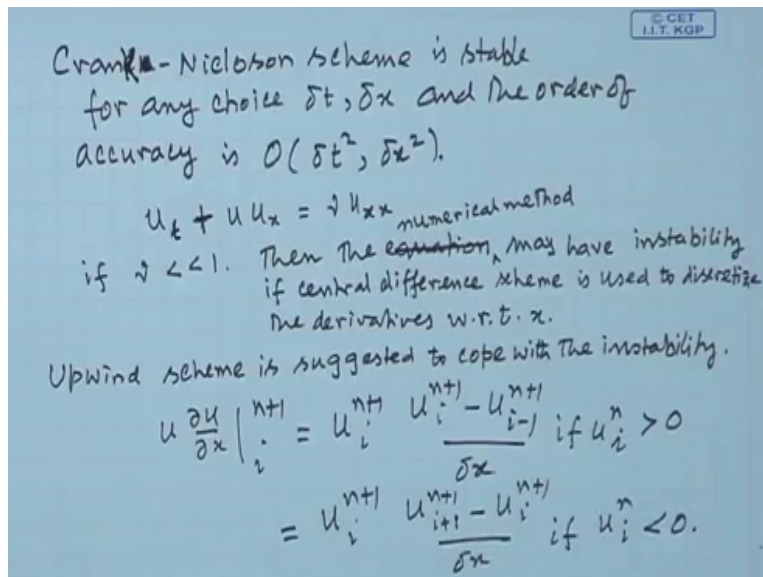 © CET
I.I.T. KGP
Crank-Nicloson scheme is stable
for any choice δt, δx and the order of
accuracy is O(δt², δx²).
u_t + u u_x = ν u_xx
numerical method
if ν <<1. Then the equation, may have instability
if central difference scheme is used to discretize
the derivatives w.r.t. x.
Upwind scheme is suggested to cope with the instability.
u ∂u/∂x |_i^{n+1} = u_i^{n+1} (u_i^{n+1} - u_{i-1}^{n+1})/δx if u_i^n > 0
= u_i^{n+1} (u_{i+1}^{n+1} - u_i^{n+1})/δx if u_i^n < 0.